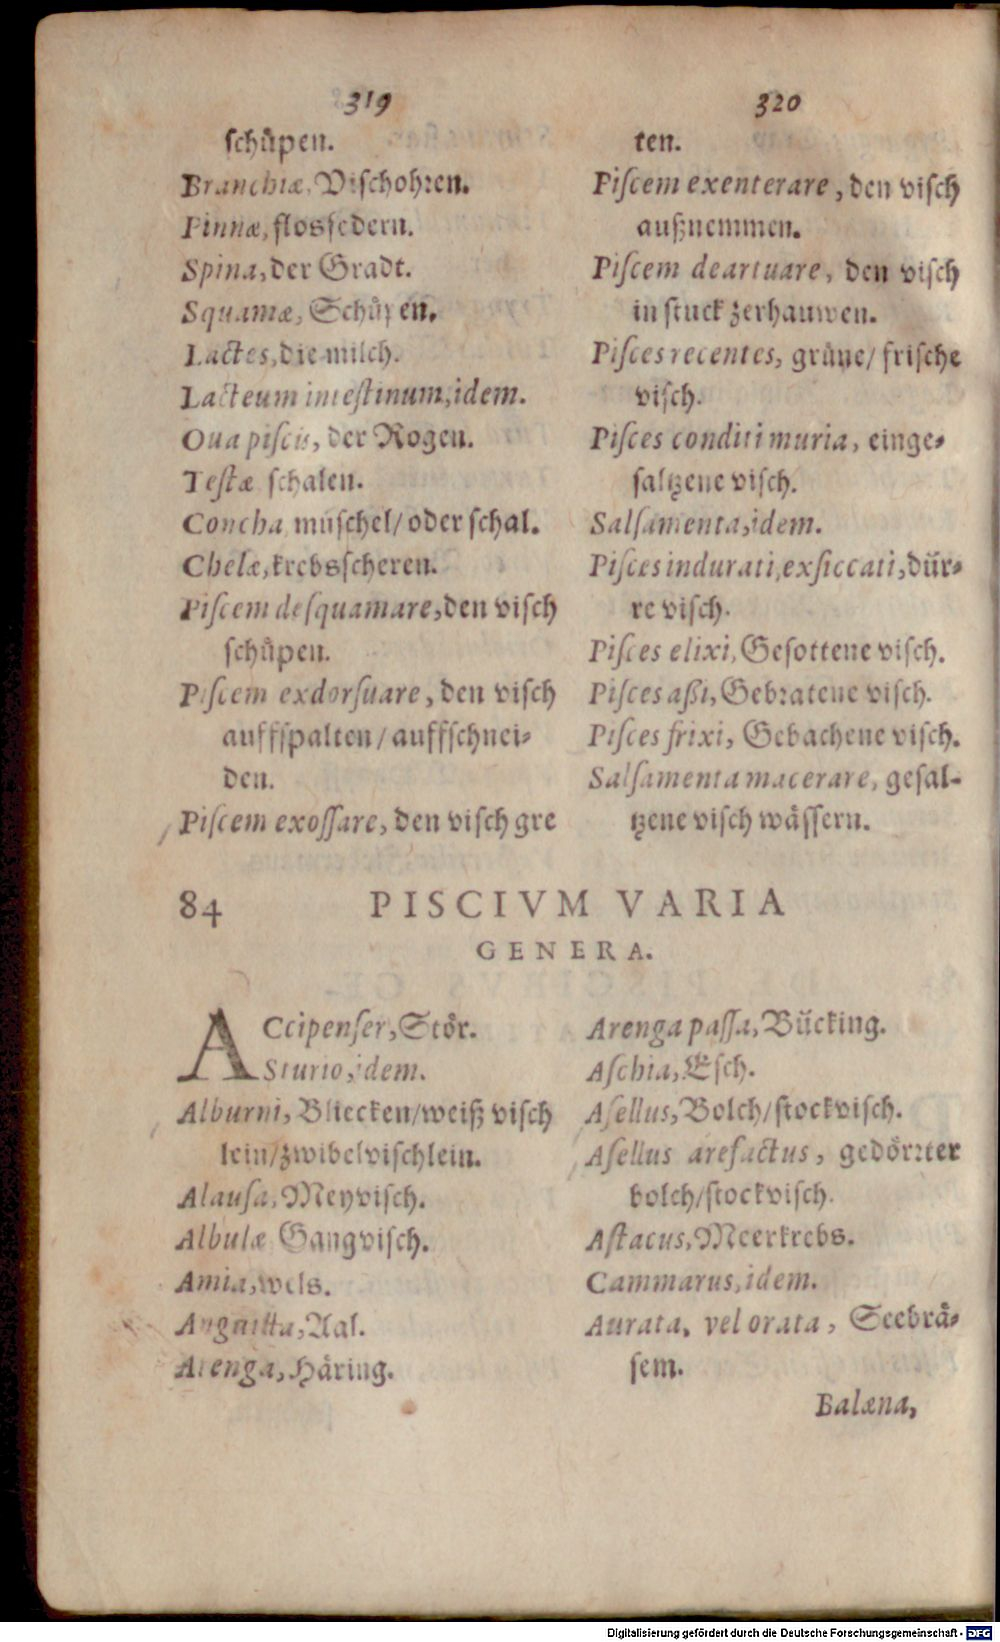 319
schůpen.
Branchiæ, Vischohren.
Pinnæ, flossfedern.
Spina, der Gradt.
Squamæ, Schůpen.
Lactes, die milch.
Lacteum intestinum, idem.
Oua piscis, der Rogen.
Testæ schalen.
Concha muschel/ oder schal.
Chelæ, krebsscheren.
Piscem desquamare, den visch
schůpen.
Piscem exdorsuare, den visch
auffspalten/ auffschnei-
den.
Piscem exossare, den visch gre
320
ten.
Piscem exenterare, den visch
außnemmen.
Piscem deartuare, den visch
in stuck zerhauwen.
Pisces recentes, grůne/ frische
visch.
Pisces conditi muria, einge-
saltzene visch.
Salsamenta, idem.
Pisces indurati, exsiccati, dür-
re visch.
Pisces elixi, Gesottene visch.
Pisces aßi, Gebratene visch.
Pisces frixi, Gebachene visch.
Salsamenta macerare, gesal-
tzene visch wåssern.
84 PISCIVM VARIA
GENERA.
ACcipenser, Stör.
Sturio, idem.
Alburni, Bliecken/weiß visch
lein/zwibelvischlein.
Alausa, Meyvisch.
Albulæ Gangvisch.
Amia, wels.
Anguilla, Aal.
Arenga, Håring.
Arenga passa, Bücking.
Aschia, Esch.
Asellus, Bolch/stockvisch.
Asellus arefactus, gedörrter
bolch/stockvisch.
Astacus, Meerkrebs.
Cammarus, idem.
Aurata, vel orata, Seebrå-
sem.
Balæna,
Digitalisierung gefördert durch die Deutsche Forschungsgemeinschaft - DFG